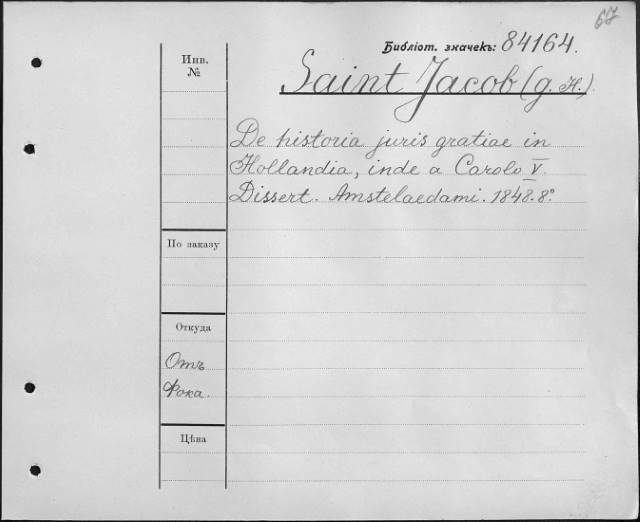 67
Библіот. значекъ: 84164.
Инв.
№
Saint Jacob (g. H.)
De historia juris gratiae in
Hollandia, inde a Carolo V.
Dissert. Amstelaedami. 1848. 8°
По заказу
Откуда
Отъ
Фока.
Цѣна